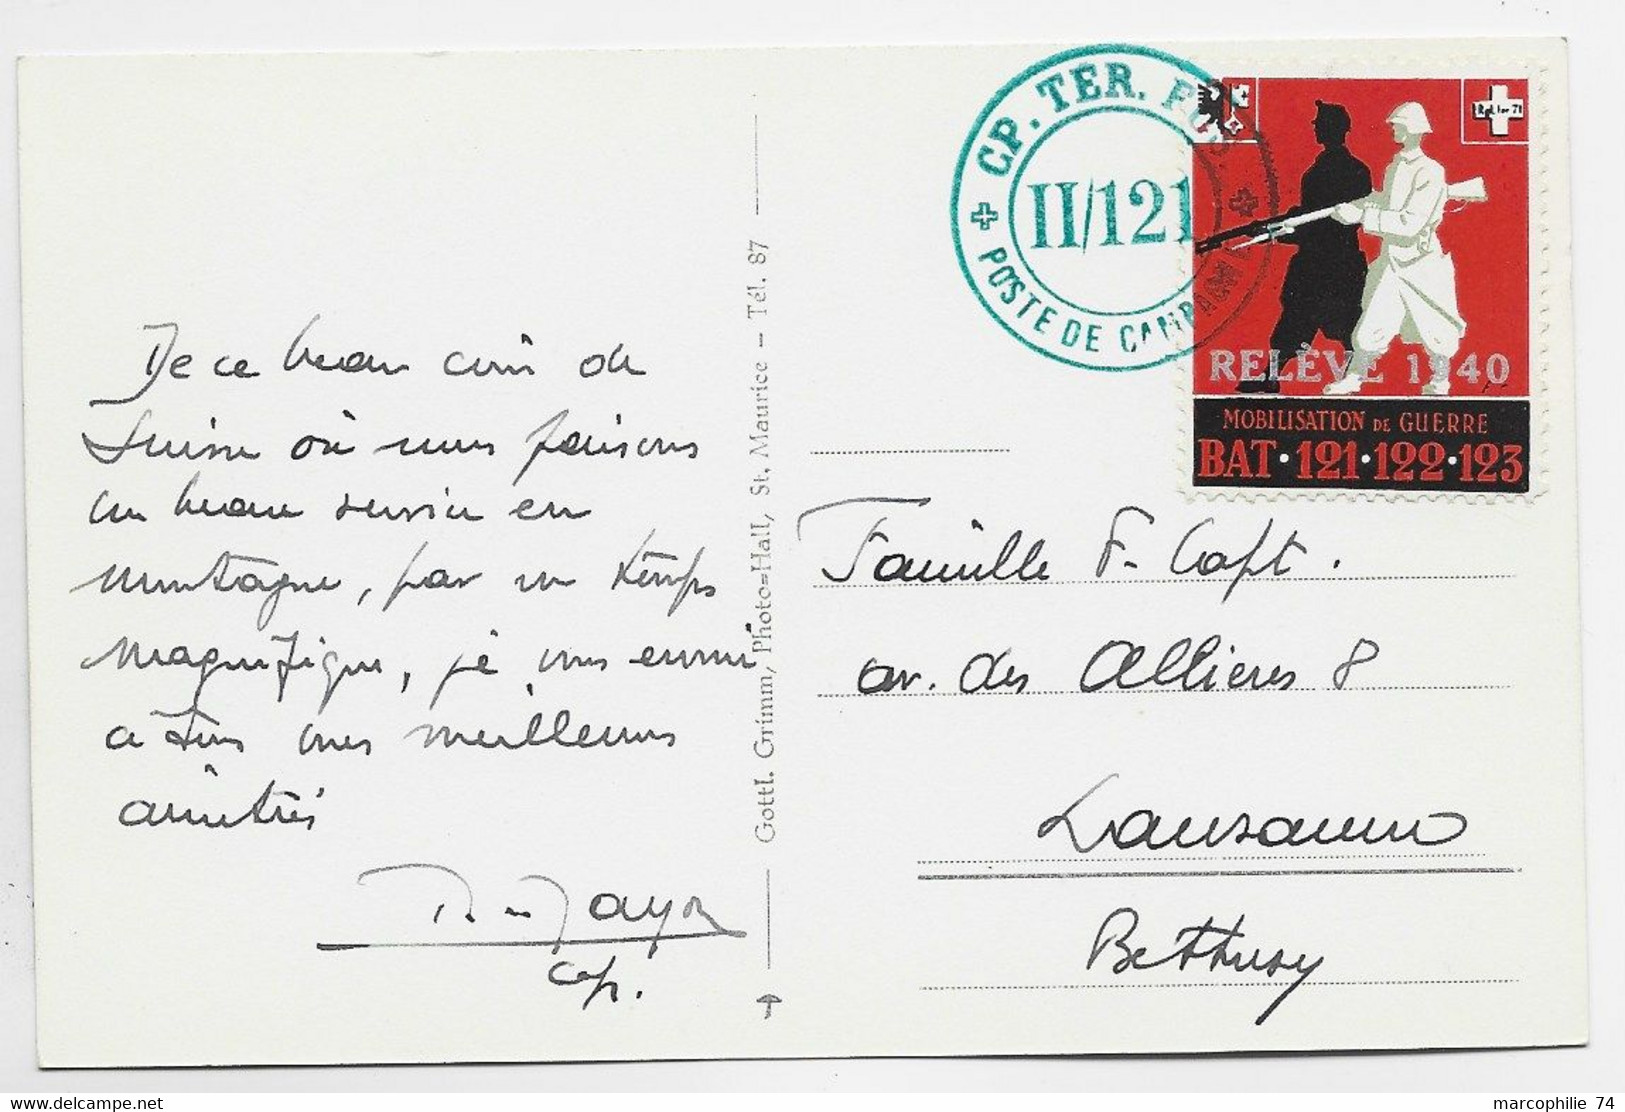 De ce beau coin de
Suisse où nous faisons
un beau service en
montagne, par un temps
magnifique, je vous envoie
à tous mes meilleures
amitiés
cap.
Gottl. Grimm, Photo=Hall, St. Maurice — Tél. 87
CP. TER. FUS.
II/121
POSTE DE CAMPAGNE
RELÈVE 1940
MOBILISATION DE GUERRE
BAT·121·122·123
Famille F. Capt.
av. des Allières 8
Lausanne
Béthusy
www.delcampe.net
marcophilie 74